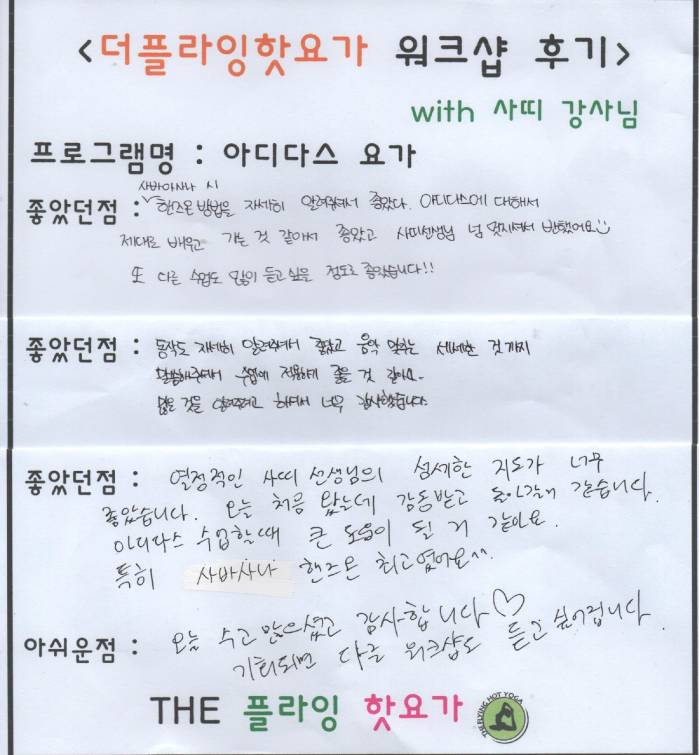 <더플라잉핫요가 워크샵 후기>
with 사띠 강사님
프로그램명 : 아디다스 요가
사바아사나 시
좋았던점 : 핸즈온 방법을 자세히 알려주셔서 좋았다. 아디다스에 대해서
제대로 배우고 가는 것 같아서 좋았고 사띠선생님 넘 멋지셔서 반했어요
또 다른 수업도 많이 듣고 싶을 정도로 좋았습니다!!
좋았던점 : 동작도 자세히 알려주셔서 좋았고 음악 맞추는 세세한 것 까지
말씀해주셔서 수업에 적용하게 좋을 것 같아요.
많은 것을 알려주려고 하셔서 너무 감사했습니다.
좋았던점 : 열정적인 사띠 선생님의 섬세한 지도가 너무
좋았습니다. 오늘 처음 왔는데 감동받고 돌아갈거 같습니다.
아디다스 수업할때 큰 도움이 될 거 같아요.
특히 사바사나 핸즈온 최고였어요^^
아쉬운점 : 오늘 수고 많으셨고 감사합니다♡
기회되면 다른 워크샵도 듣고 싶어집니다.
THE 플라잉 핫요가
THE FLYING HOT YOGA